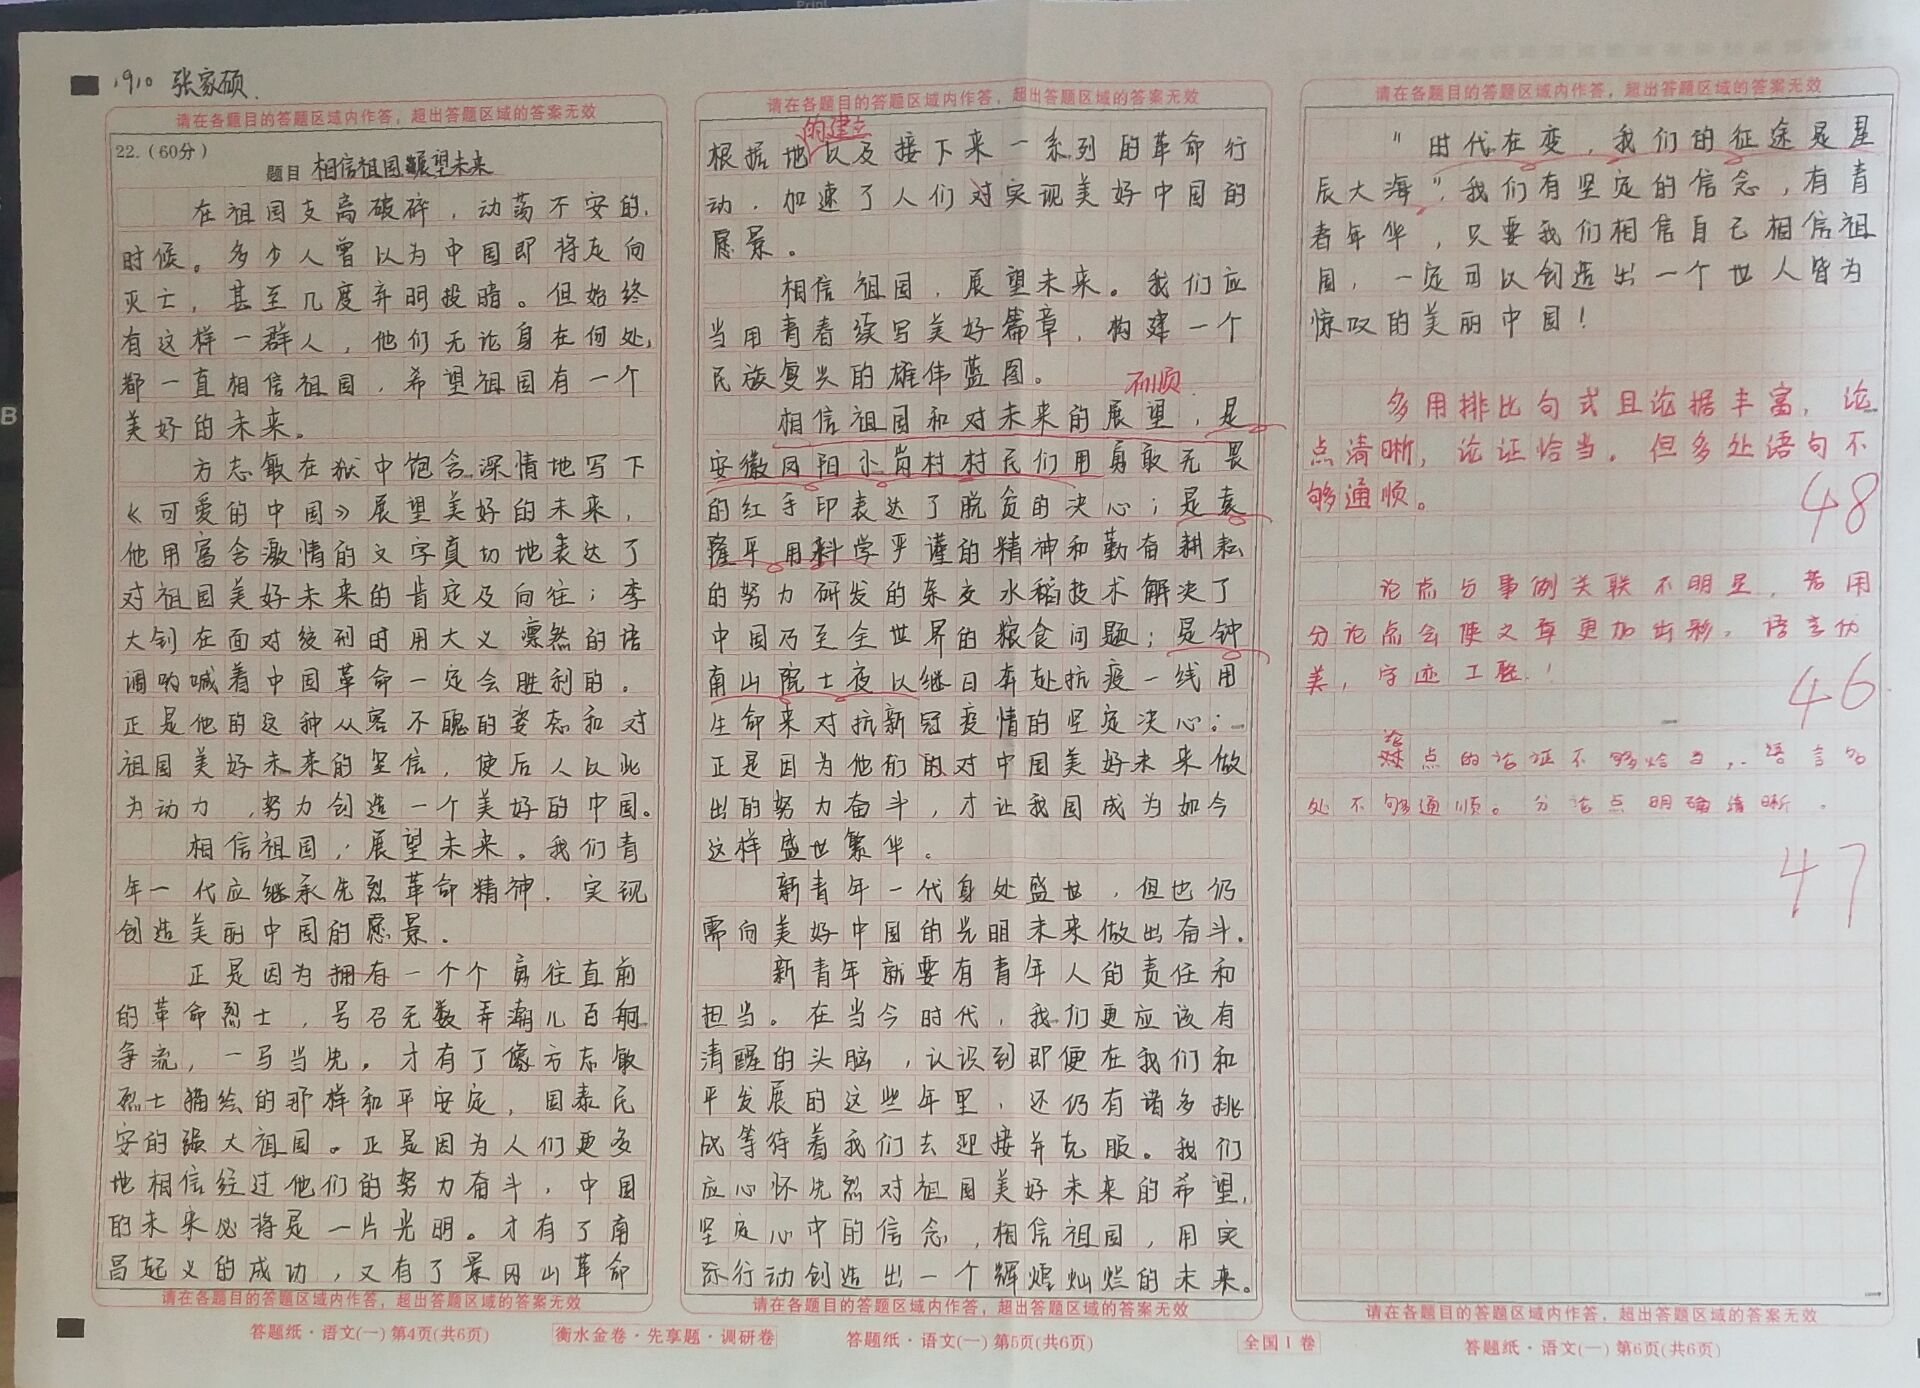 1910 张家硕.
请在各题目的答题区域内作答，超出答题区域的答案无效
22.（60分）
题目 相信祖国 展望未来
在祖国支离破碎，动荡不安的
时候。多少人曾以为中国即将走向
灭亡，甚至几度弃明投暗。但始终
有这样一群人，他们无论身在何处，
都一直相信祖国，希望祖国有一个
美好的未来。
方志敏在狱中饱含深情地写下
《可爱的中国》展望美好的未来，
他用富含激情的文字真切地表达了
对祖国美好未来的肯定及向往；李
大钊在面对绞刑时用大义凛然的语
调呐喊着中国革命一定会胜利的。
正是他的这种从容不魄的姿态和对
祖国美好未来的坚信，使后人以此
为动力，努力创造一个美好的中国。
相信祖国，展望未来。我们青
年一代应继承先烈革命精神，实现
创造美丽中国的愿景。
正是因为拥有一个个勇往直前
的革命烈士，号召无数弄潮儿百舸
争流，一马当先。才有了像方志敏
烈士描绘的那样和平安定，国泰民
安的强大祖国。正是因为人们更多
地相信经过他们的努力奋斗，中国
的未来必将是一片光明。才有了南
昌起义的成功，又有了景冈山革命
请在各题目的答题区域内作答，超出答题区域的答案无效
答题纸·语文(一) 第4页(共6页)
请在各题目的答题区域内作答，超出答题区域的答案无效
的建立
根据地以及接下来一系列的革命行
动，加速了人们对实现美好中国的
愿景。
相信祖国，展望未来。我们应
当用青春续写美好篇章，构建一个
民族复兴的雄伟蓝图。
不顺
相信祖国和对未来的展望，是
安徽凤阳小岗村村民们用勇敢无畏
的红手印表达了脱贫的决心；是袁
隆平用科学严谨的精神和勤奋耕耘
的努力研发的杂交水稻技术解决了
中国乃至全世界的粮食问题；是钟
南山院士夜以继日奔赴抗疫一线用
生命来对抗新冠疫情的坚定决心；
正是因为他们的对中国美好未来做
出的努力奋斗，才让我国成为如今
这样盛世繁华。
新青年一代身处盛世，但也仍
需向美好中国的光明未来做出奋斗。
新青年就要有青年人的责任和
担当。在当今时代，我们更应该有
清醒的头脑，认识到即便在我们和
平发展的这些年里，还仍有诸多挑
战等待着我们去迎接并克服。我们
应心怀先烈对祖国美好未来的希望，
坚定心中的信念，相信祖国，用实
际行动创造出一个辉煌灿烂的未来。
请在各题目的答题区域内作答，超出答题区域的答案无效
衡水金卷·先享题·调研卷 答题纸·语文(一) 第5页(共6页) 全国Ⅰ卷
请在各题目的答题区域内作答，超出答题区域的答案无效
"时代在变，我们的征途是星
辰大海"，我们有坚定的信念，有青
春年华，只要我们相信自己相信祖
国，一定可以创造出一个世人皆为
惊叹的美丽中国！
多用排比句式且论据丰富，论
点清晰，论证恰当。但多处语句不
够通顺。
48
论点与事例关联不明显，若用
分论点会使文章更加出彩。语言优
美，字迹工整！
46
论
点的论证不够恰当，语言多
处不够通顺。分论点明确清晰。
47
请在各题目的答题区域内作答，超出答题区域的答案无效
答题纸·语文(一) 第6页(共6页)